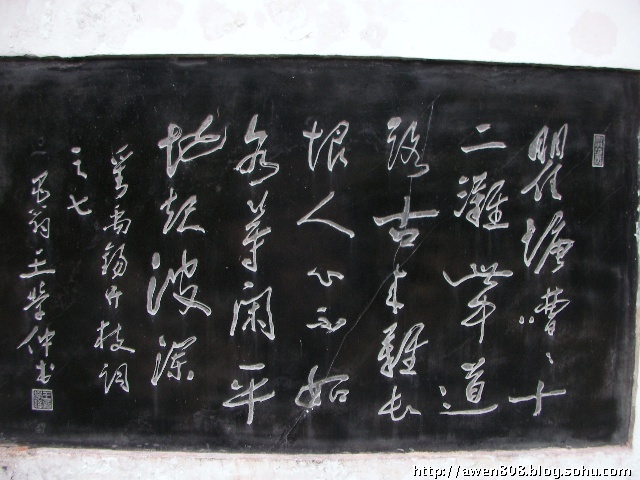 瞿塘嘈〻十
二灘此中道
路古来難長
恨人心不如
水等閑平
地起波瀾
劉禹錫竹枝詞
之七
黽翁王學仲书
http://awen808.blog.sohu.com